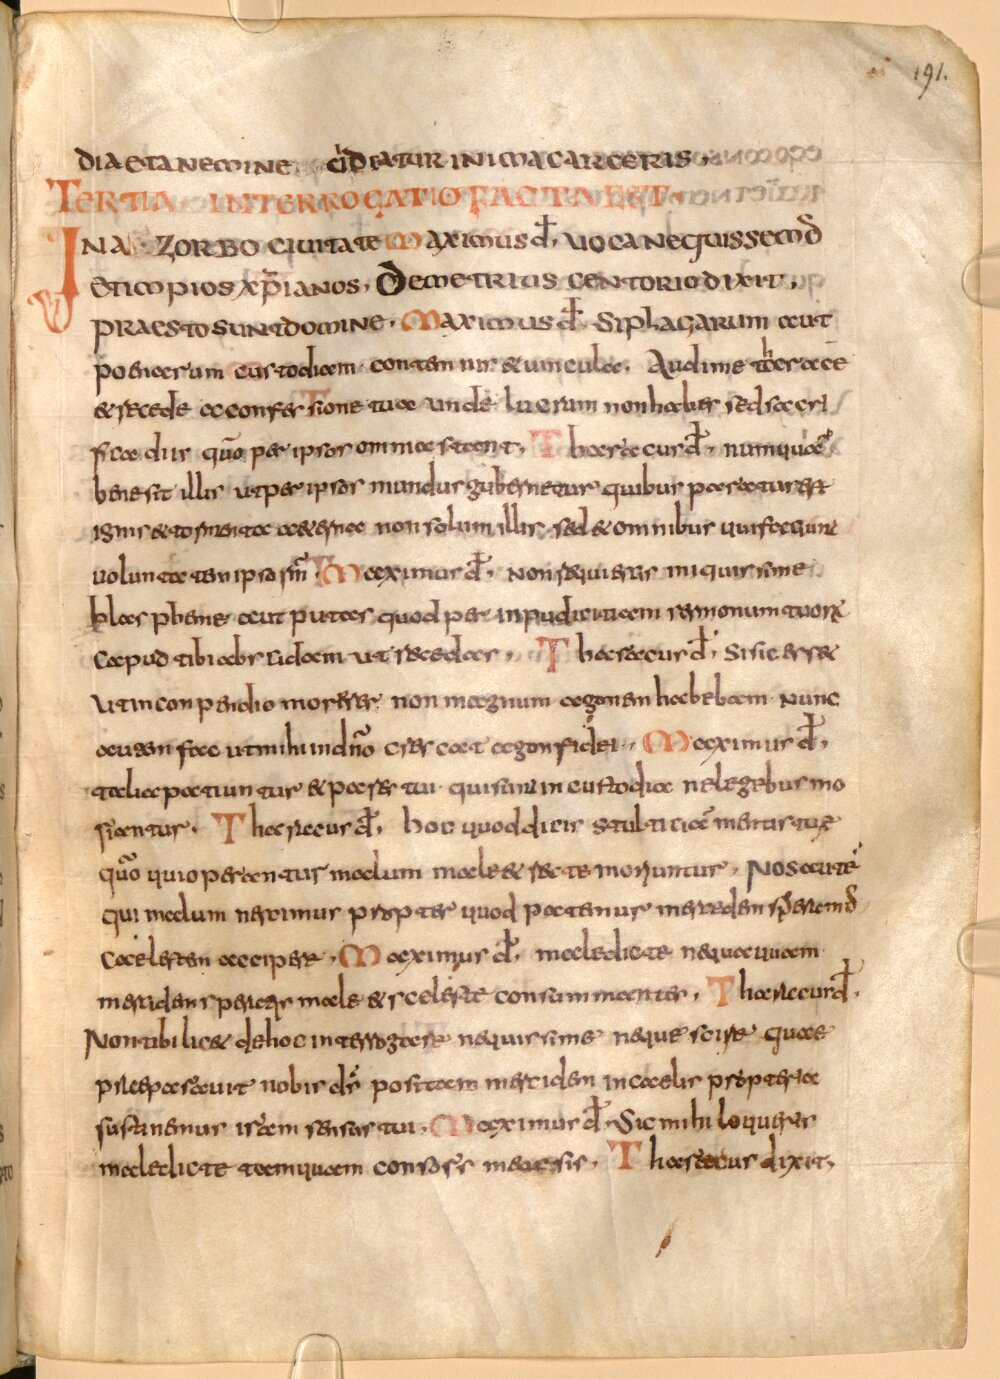 191.
DIAETANEMINE CIDEATUR INIMACARCERIS,
TERTIA INTERROGATIO FACTA EST.
INA ZORBO CIUITATE MAXIMUS d, UOCANEQUISSEMOD
ETIMPIOS XPIANOS, DEMETRIUS CENTORIO DIXIT,
PRAESTO SUNT DOMINE, MAXIMUS d, Si plagarum aut
posuerum custodiam contamnis & uincula. Audi me
& recede a confessione tua unde lucrum non habes sed sacri
fica diis qm per ipsos omnia stant, Tharacus d, numquam
bene sit illis ut per ipsos mundus gubernetur quibus paratus est
ignis & tormenta aeterna non solum illis sed & omnibus qui faciunt
uoluntatem ipsorum, Maximus d, Non sequieris iniquissime
blaspheme aut putas quod per inpudicitiam sermonum tuorum
caput tibi abscidam ut recedas, Tharacus d, Si sic esset
ut in conpendio morerer non magnum agonem habebam Nunc
autem fac ut mihi in dno crescat agon fidei, Maximus d,
talia patiuntur & pares tui qui sunt in custodia ne legebus mo
riantur, Tharacus d, hoc quod dicis stultitia mentis tuae
qm qui operantur malum male & recte moriuntur, Nos aute
qui malum nescimus propter quod patemur mercedem speram d
caelestem accipere, Maximus d, maledicte nequaquam
mercidem speres male & sceleste consummantes, Tharacus d,
Non tibi licet de hoc interrogare nequissime neque scire quae
praeparauit nobis ds positam mercidem in caelis propteria
sustinemus iram sensus tui, Maximus d, Sic mihi loqueris
maledicte tamquam consors meus sis, Tharacus dixit,